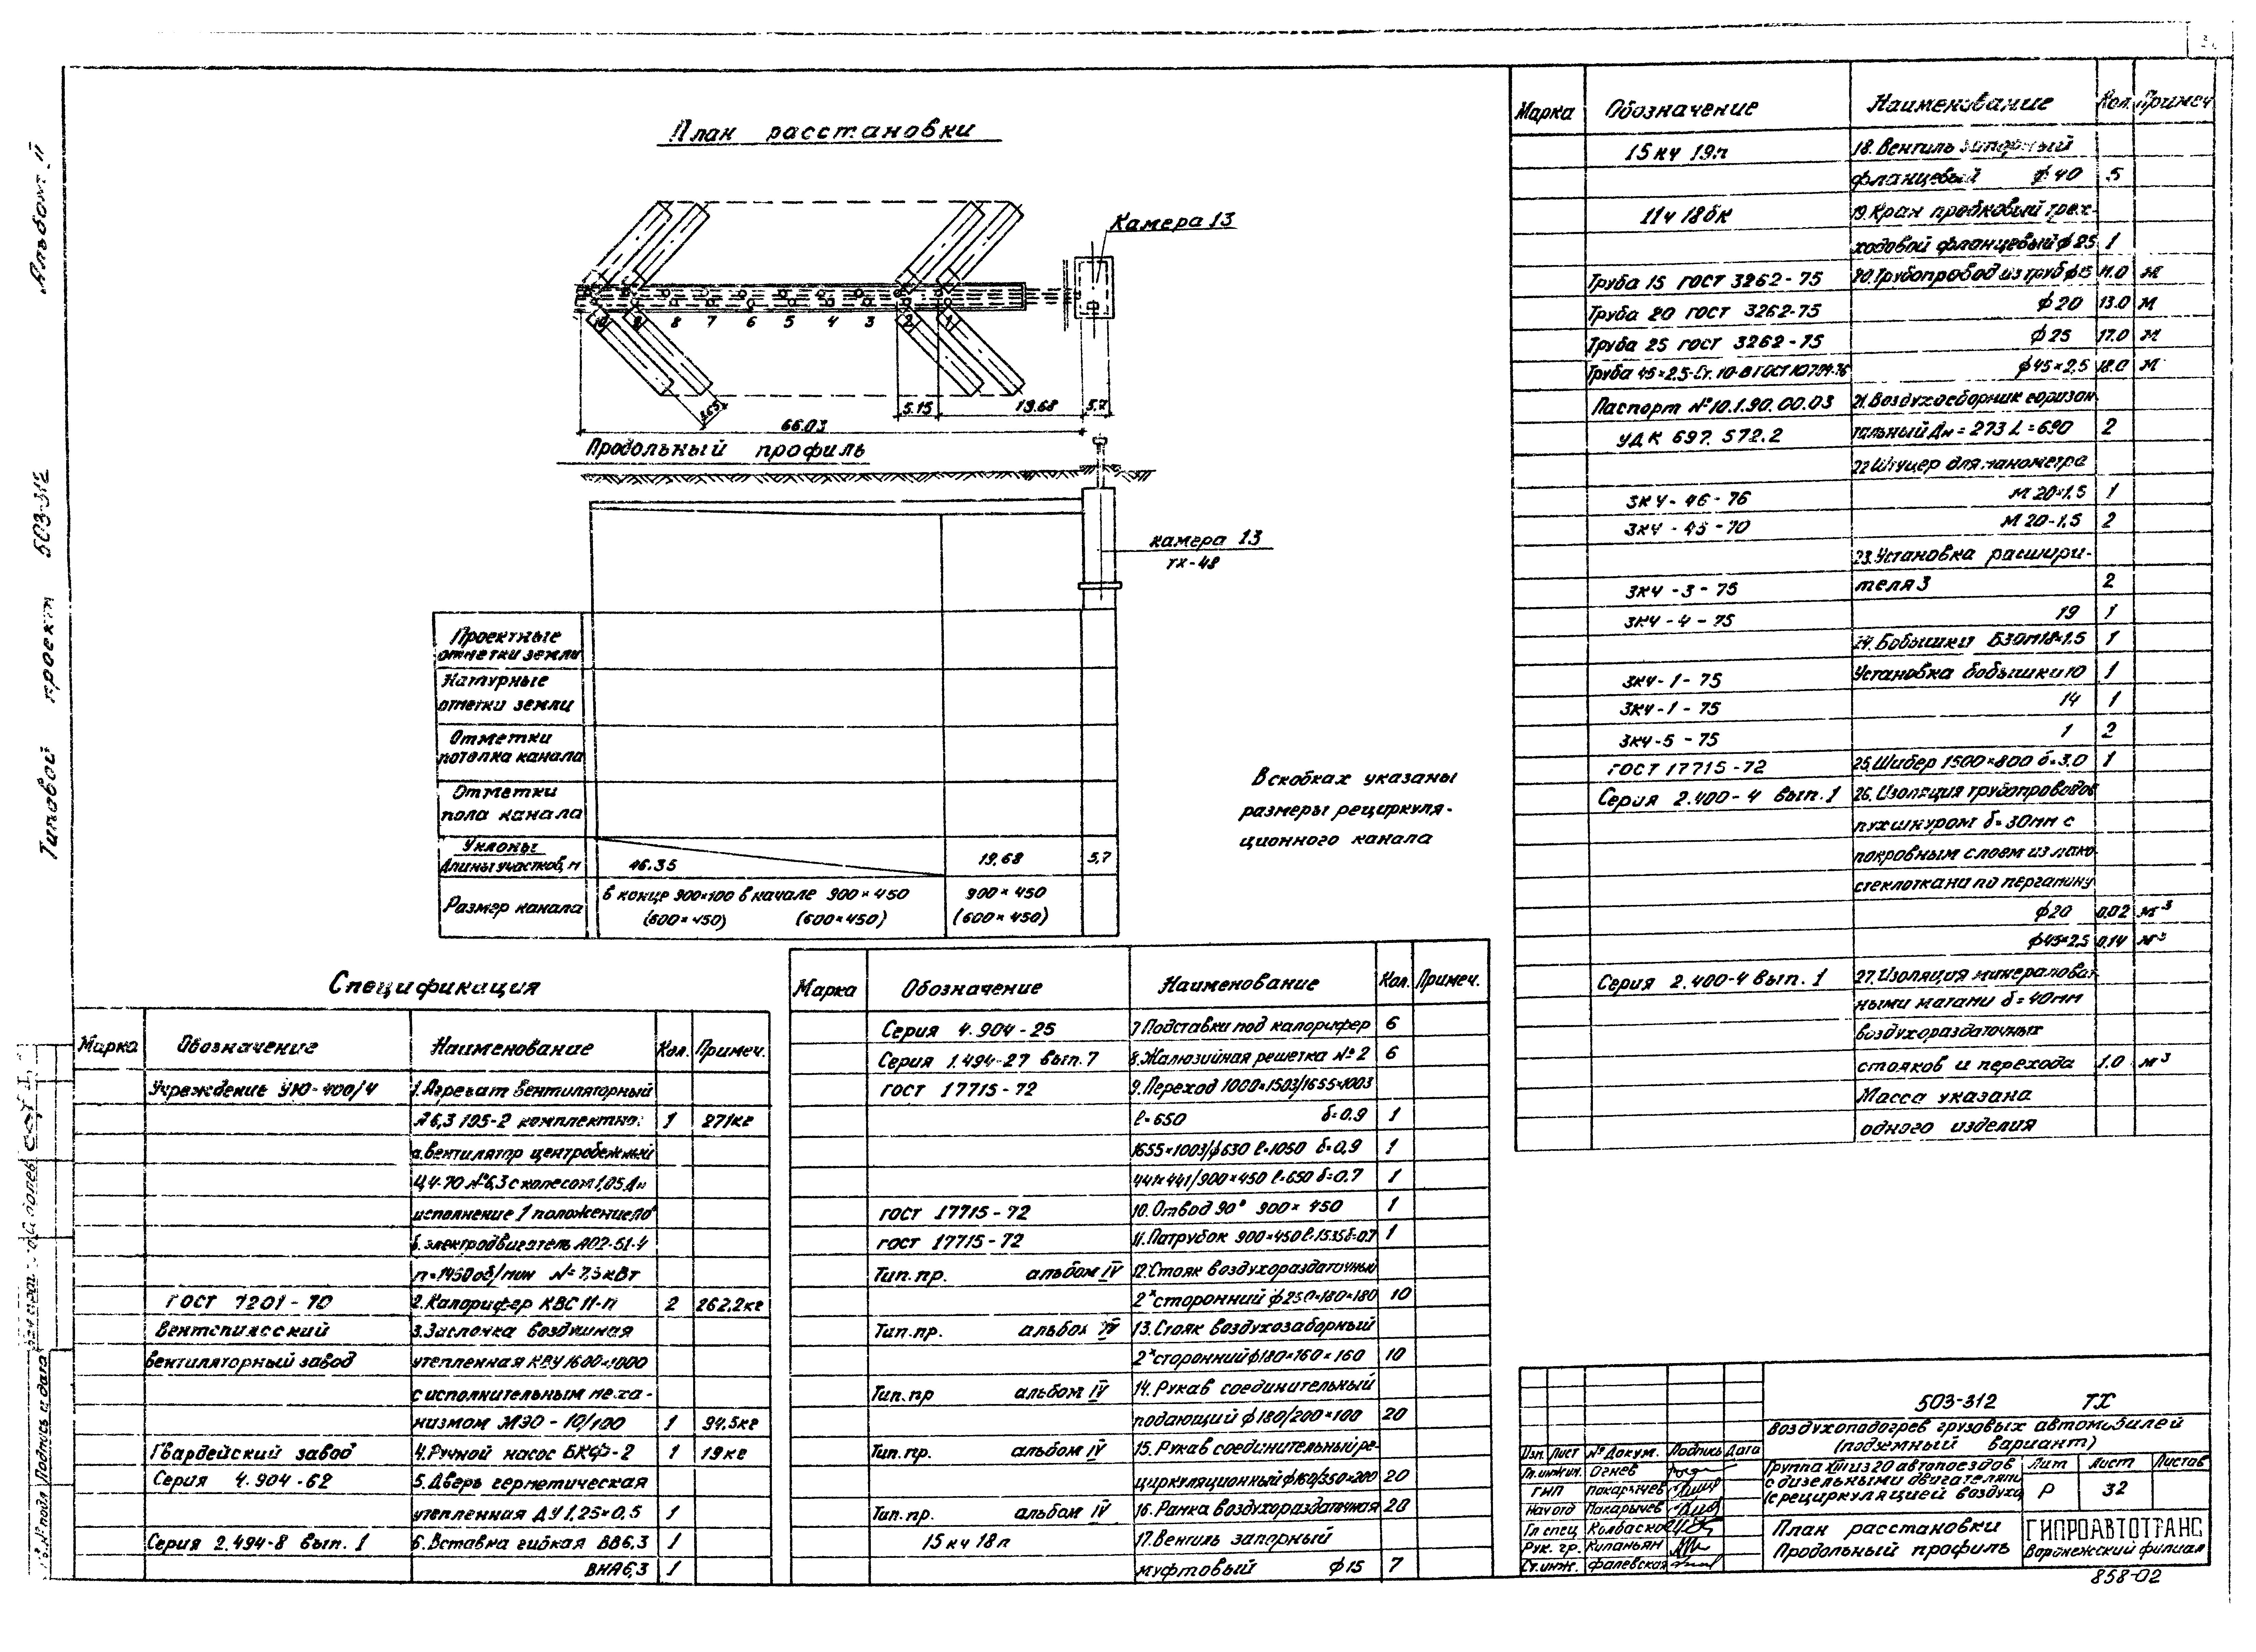 Альбом II
Типовой проект 503-312
План расстановки
Камера 13
10 9 8 7 6 5 4 3 2 1
5.15 19.68 5.7
66.03
Продольный профиль
камера 13
ТХ-48
Проектные
отметки земли
Натурные
отметки земли
Отметки
потолка канала
Отметки
пола канала
Уклоны
Длины участков, м 46.35 19.68 5,7
Размер канала в конце 900×100 в начале 900×450 900×450
(600×450) (600×450) (600×450)
В скобках указаны
размеры рециркуля-
ционного канала
Спецификация
Марка Обозначение Наименование Кол. Примеч.
Учреждение УЮ-400/4 1.Агрегат вентиляторный
А6,3 105-2 комплектно: 1 271кг
а.вентилятор центробежный
Ц4-70 №6,3 с колесом 1,05Дн
исполнение 1 положение
б.электродвигатель АО2-51-4
n=1450об/мин N=7,5кВт
ГОСТ 7201-70 2.Калорифер КВС11-П 2 262,2кг
Вентспилсский 3.Заслонка воздушная
вентиляторный завод утепленная КВУ1600×1000
с исполнительным меха-
низмом МЭО-10/100 1 94.5кг
Гвардейский завод 4.Ручной насос БКФ-2 1 19кг
Серия 4.904-62 5.Дверь герметическая
утепленная ДУ1,25×0,5 1
Серия 2.494-8 вып.1 6.Вставка гибкая ВВ6,3 1
ВНА6,3 1
Марка Обозначение Наименование Кол. Примеч.
Серия 4.904-25 7.Подставки под калорифер 6
Серия 1.494-27 вып.7 8.Жалюзийная решетка №2 6
ГОСТ 17715-72 9.Переход 1000×1503/1655×1003
ℓ=650 δ=0.9 1
1655×1003/ф630 ℓ=1050 δ=0,9 1
441×441/900×450 ℓ=650 δ=0.7 1
ГОСТ 17715-72 10.Отвод 90° 900×450 1
ГОСТ 17715-72 11.Патрубок 900×450 ℓ=1535 δ=0.7 1
Тип.пр. альбом IV 12.Стояк воздухораздаточный
2ˣсторонний ф250×180×180 10
Тип.пр. альбом IV 13.Стояк воздухозаборный
2ˣсторонний ф180×160×160 10
Тип.пр альбом IV 14.Рукав соединительный
подающий ф180/200×100 20
Тип.пр. альбом IV 15.Рукав соединительный ре-
циркуляционный ф160/350×200 20
Тип.пр. альбом IV 16.Рамка воздухораздаточная 20
15кч18п 17.Вентиль запорный
муфтовый ф15 7
Марка Обозначение Наименование Кол. Примеч
15кч19п 18.Вентиль запорный
фланцевый ф40 5
11ч18бк 19.Кран пробковый трех-
ходовой фланцевый ф25 1
Труба 15 ГОСТ 3262-75 20.Трубопровод из труб ф15 11.0 м
Труба 20 ГОСТ 3262-75 ф20 13.0 м
Труба 25 ГОСТ 3262-75 ф25 17.0 м
Труба 45×2,5-Ст.10-В ГОСТ 10704-76 ф45×2,5 18.0 м
Паспорт №10.1.90.00.03 21.Воздухосборник горизон
УДК 697.572.2 тальный Дн=273 L=690 2
22.Штуцер для манометра
ЗКЧ-46-76 М20×1,5 1
ЗКЧ-45-70 М20-1,5 2
23.Установка расшири-
ЗКЧ-3-75 теля 3 2
ЗКЧ-4-75 19 1
24.Бобышки 1
ЗКЧ-1-75 Установка бобышки 10 1
ЗКЧ-1-75 14 1
ЗКЧ-5-75 1 2
ГОСТ 17715-72 25.Шибер 1500×800 δ=3.0 1
Серия 2.400-4 вып.1 26.Изоляция трубопроводов
пухшнуром δ=30мм с
покровным слоем из лако-
стеклоткани по пергамину
ф20 0.02 м³
ф45×2,5 0.14 м³
Серия 2.400-4 вып.1 27.Изоляция минераловат
ными матами δ=40мм
воздухораздаточных
стояков и перехода 1.0 м³
Масса указана
одного изделия
503-312 ТХ
Воздухоподогрев грузовых автомобилей
(подземный вариант)
Изм. Лист № Докум. Подпись Дата
Гл.инжин. Огнев
ГИП Покарычев
Нач отд Покарычев
Гл спец
Рук. гр. Кипаньян
Ст.инж. Фалевская
Группа XIII из 20 автопоездов
с дизельными двигателями
(с рециркуляцией воздуха)
Лит Лист Листов
Р 32
План расстановки
Продольный профиль
ГИПРОАВТОТРАНС
Воронежский филиал
858-02
Подпись и дата